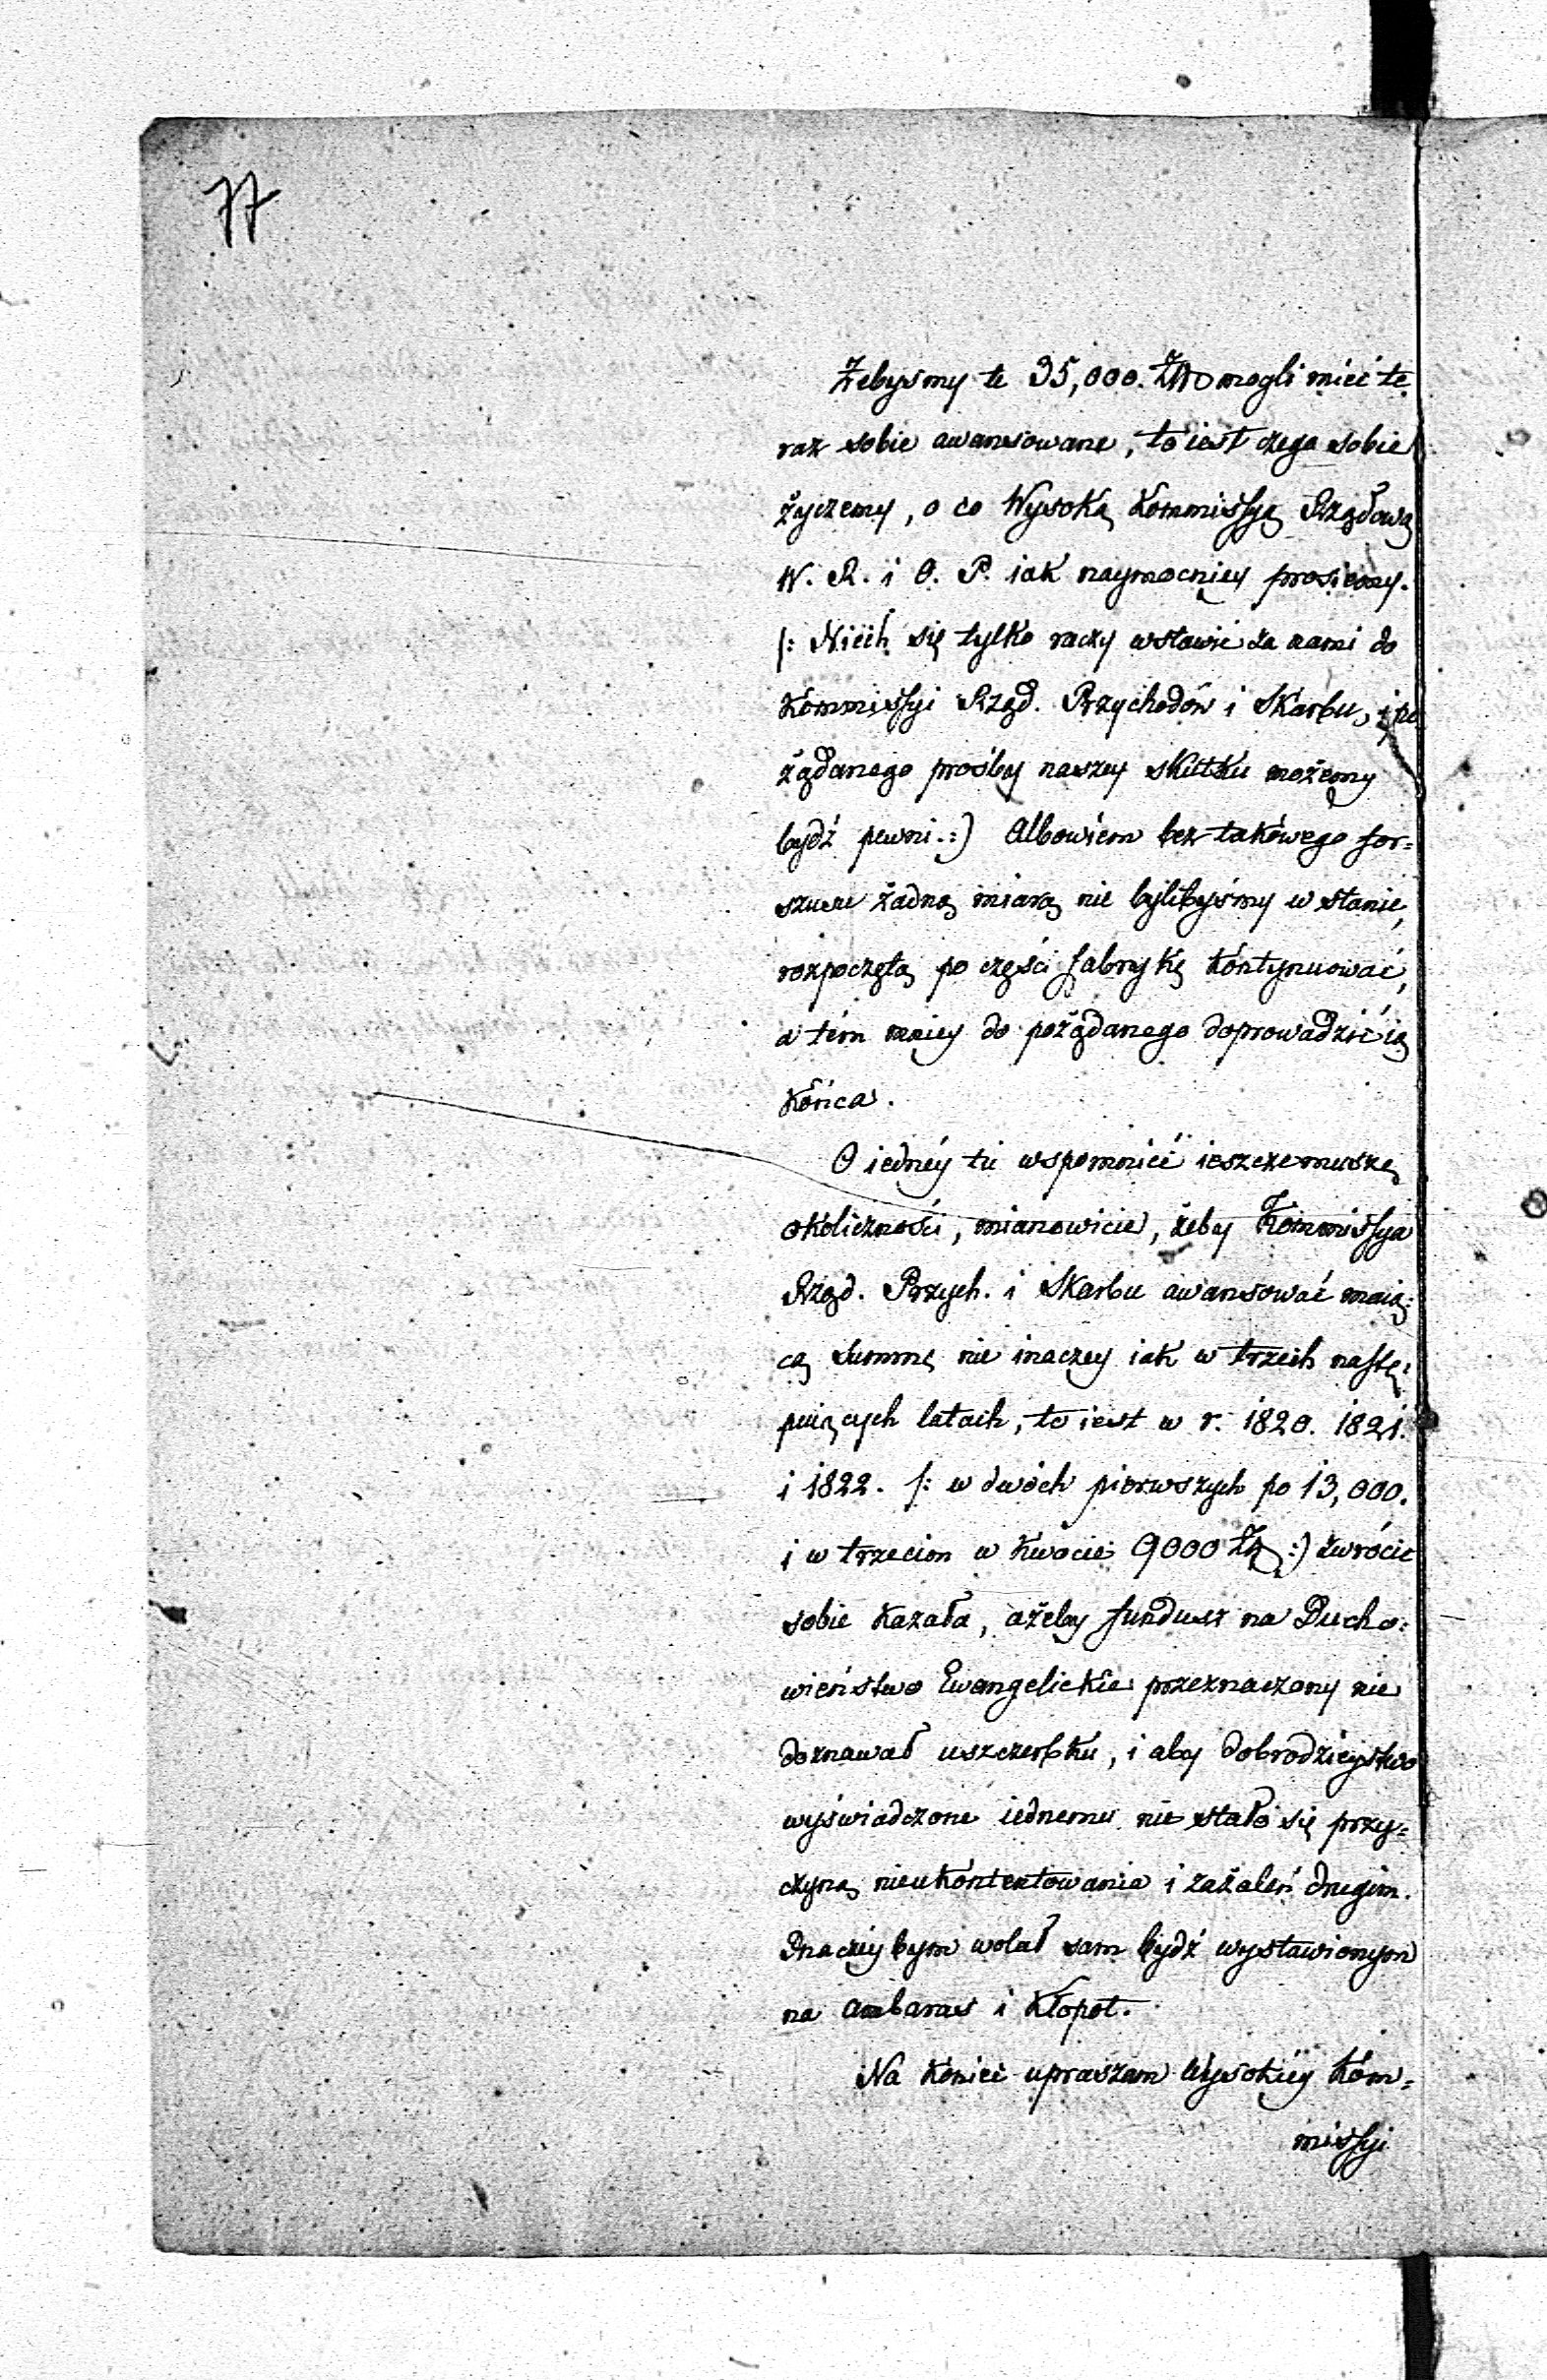 77
Żebyśmy te 35,000. Złł mogli mieć te
raz sobie awansowane, to iest czego sobie
życzemy, o co Wysoką Kommissyą Rządową
W. R. i O. P. iak naymocniey prosiemy.
/: Niech się tylko raczy wstawić za nami do
Kommissyi Rząd. Przychodów i Skarbu, i po
żądanego prośby naszey skutku możemy
bydź pewni. :) Albowiem bez takówego for=
szusu żadną miarą nie bylibyśmy w stanie,
rozpoczętą po części fabrykę kóntynuować,
a tém mniey do pożądanego doprowadzić ią
końca.
O iedney tu wspomnieć ieszcze muszę
okoliczności, mianowicie, żeby Kommissya
Rząd. Przych. i Skarbu awansować maią=
cą summę nie inaczey iak w trzech nastę=
puiących latach, to iest w r. 1820. 1821.
i 1822. /: w dwóch pierwszych po 13,000.
i w trzecim w kwocie 9000 Zł :) zwrócić
sobie kazała, ażeby fundusz na Ducho=
wieństwo Ewangelickie przeznaczony nie
doznawał uszczerbku, i aby dobrodzieystwo
wyświadczone iednemu nie stało się przy=
czyną nieukóntentowania i zażaleń drugim.
Inaczey bym wolał sam bydź wystawionym
na ambaras i kłopot.
Na koniec upraszam Wysokiey Kóm=
missyi